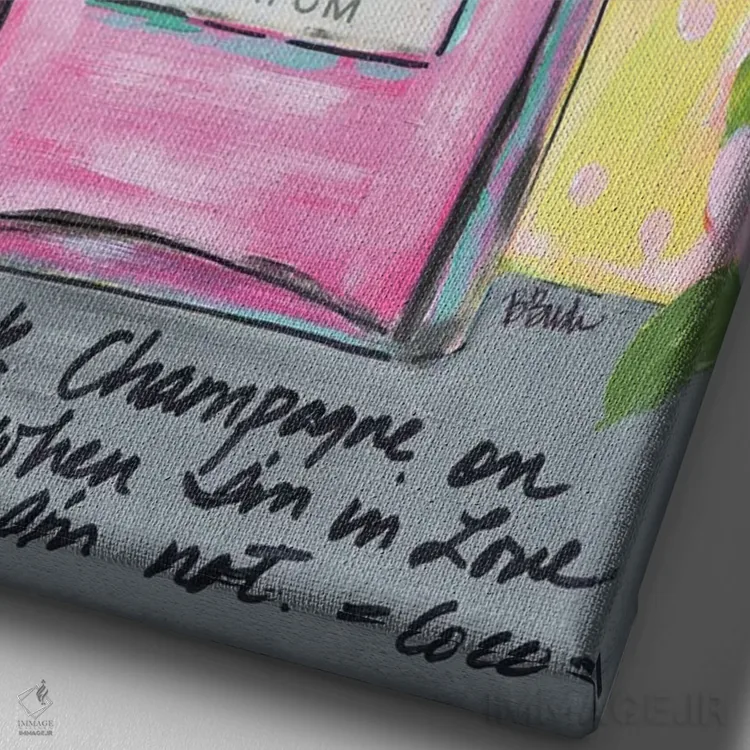 FUM
bBush
Champagne on
when Im in Love
am not. =Coco=
IMMAGE
IMMAGE.IR
IMMAGE.IR